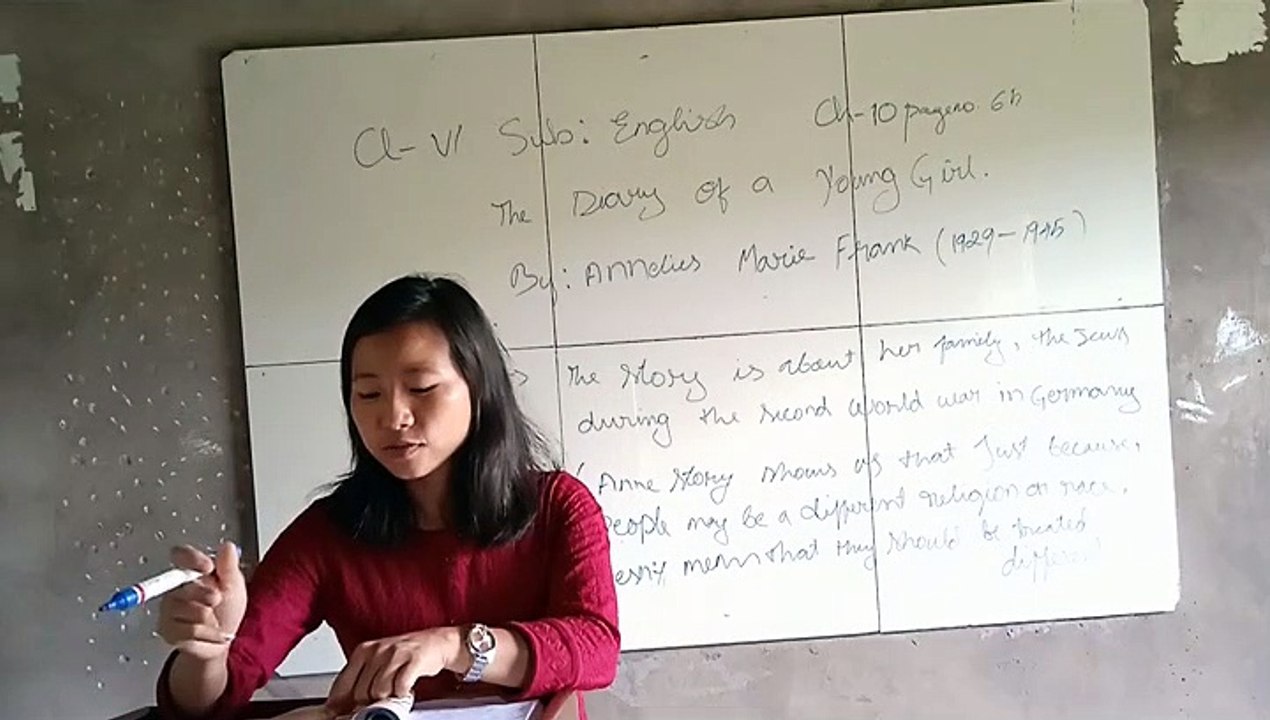 Cl-VI Sub: English Ch-10 page no.
The Diary of a Young Girl.
By: Annelies Marie Frank (1929-1945)
The story is about her family, the Jews
during the second world war in Germany
Anne story shows us that just because,
people may be a different religion or race,
mean that they should be treated